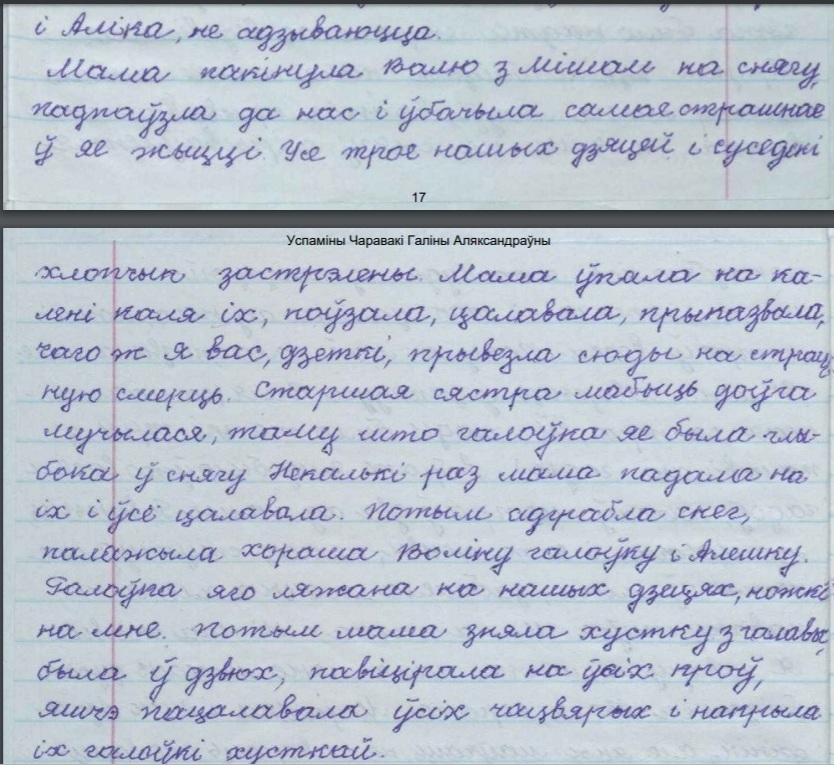 і Аліка, не адзываюцца.
Мама пакінула Валю з Мішам на снягу,
падпаўзла да нас і ўбачыла самае страшнае
ў яе жыцці. Усе трое нашых дзяцей і суседскі
17
Успаміны Чаравакі Галіны Аляксандраўны
хлопчык застрэлены. Мама ўпала на ка-
лені каля іх, поўзала, цалавала, прыказвала,
чаго ж я вас, дзеткі, прывезла сюды на страш-
ную смерць. Старшая сястра мабыць доўга
мучылася, таму што галоўка яе была глы-
бока ў снягу. Некалькі раз мама падала на
іх і ўсё цалавала. Потым адграбла снег,
палажыла хораша Воліну галоўку і Алешку.
Галоўка яго ляжала на нашых дзецях, ножкі
на мне. Потым мама зняла хустку з галавы,
была ў дзвюх, павыцірала на ўсіх кроў,
яшчэ пацалавала ўсіх чацвярых і накрыла
іх галоўкі хусткай.